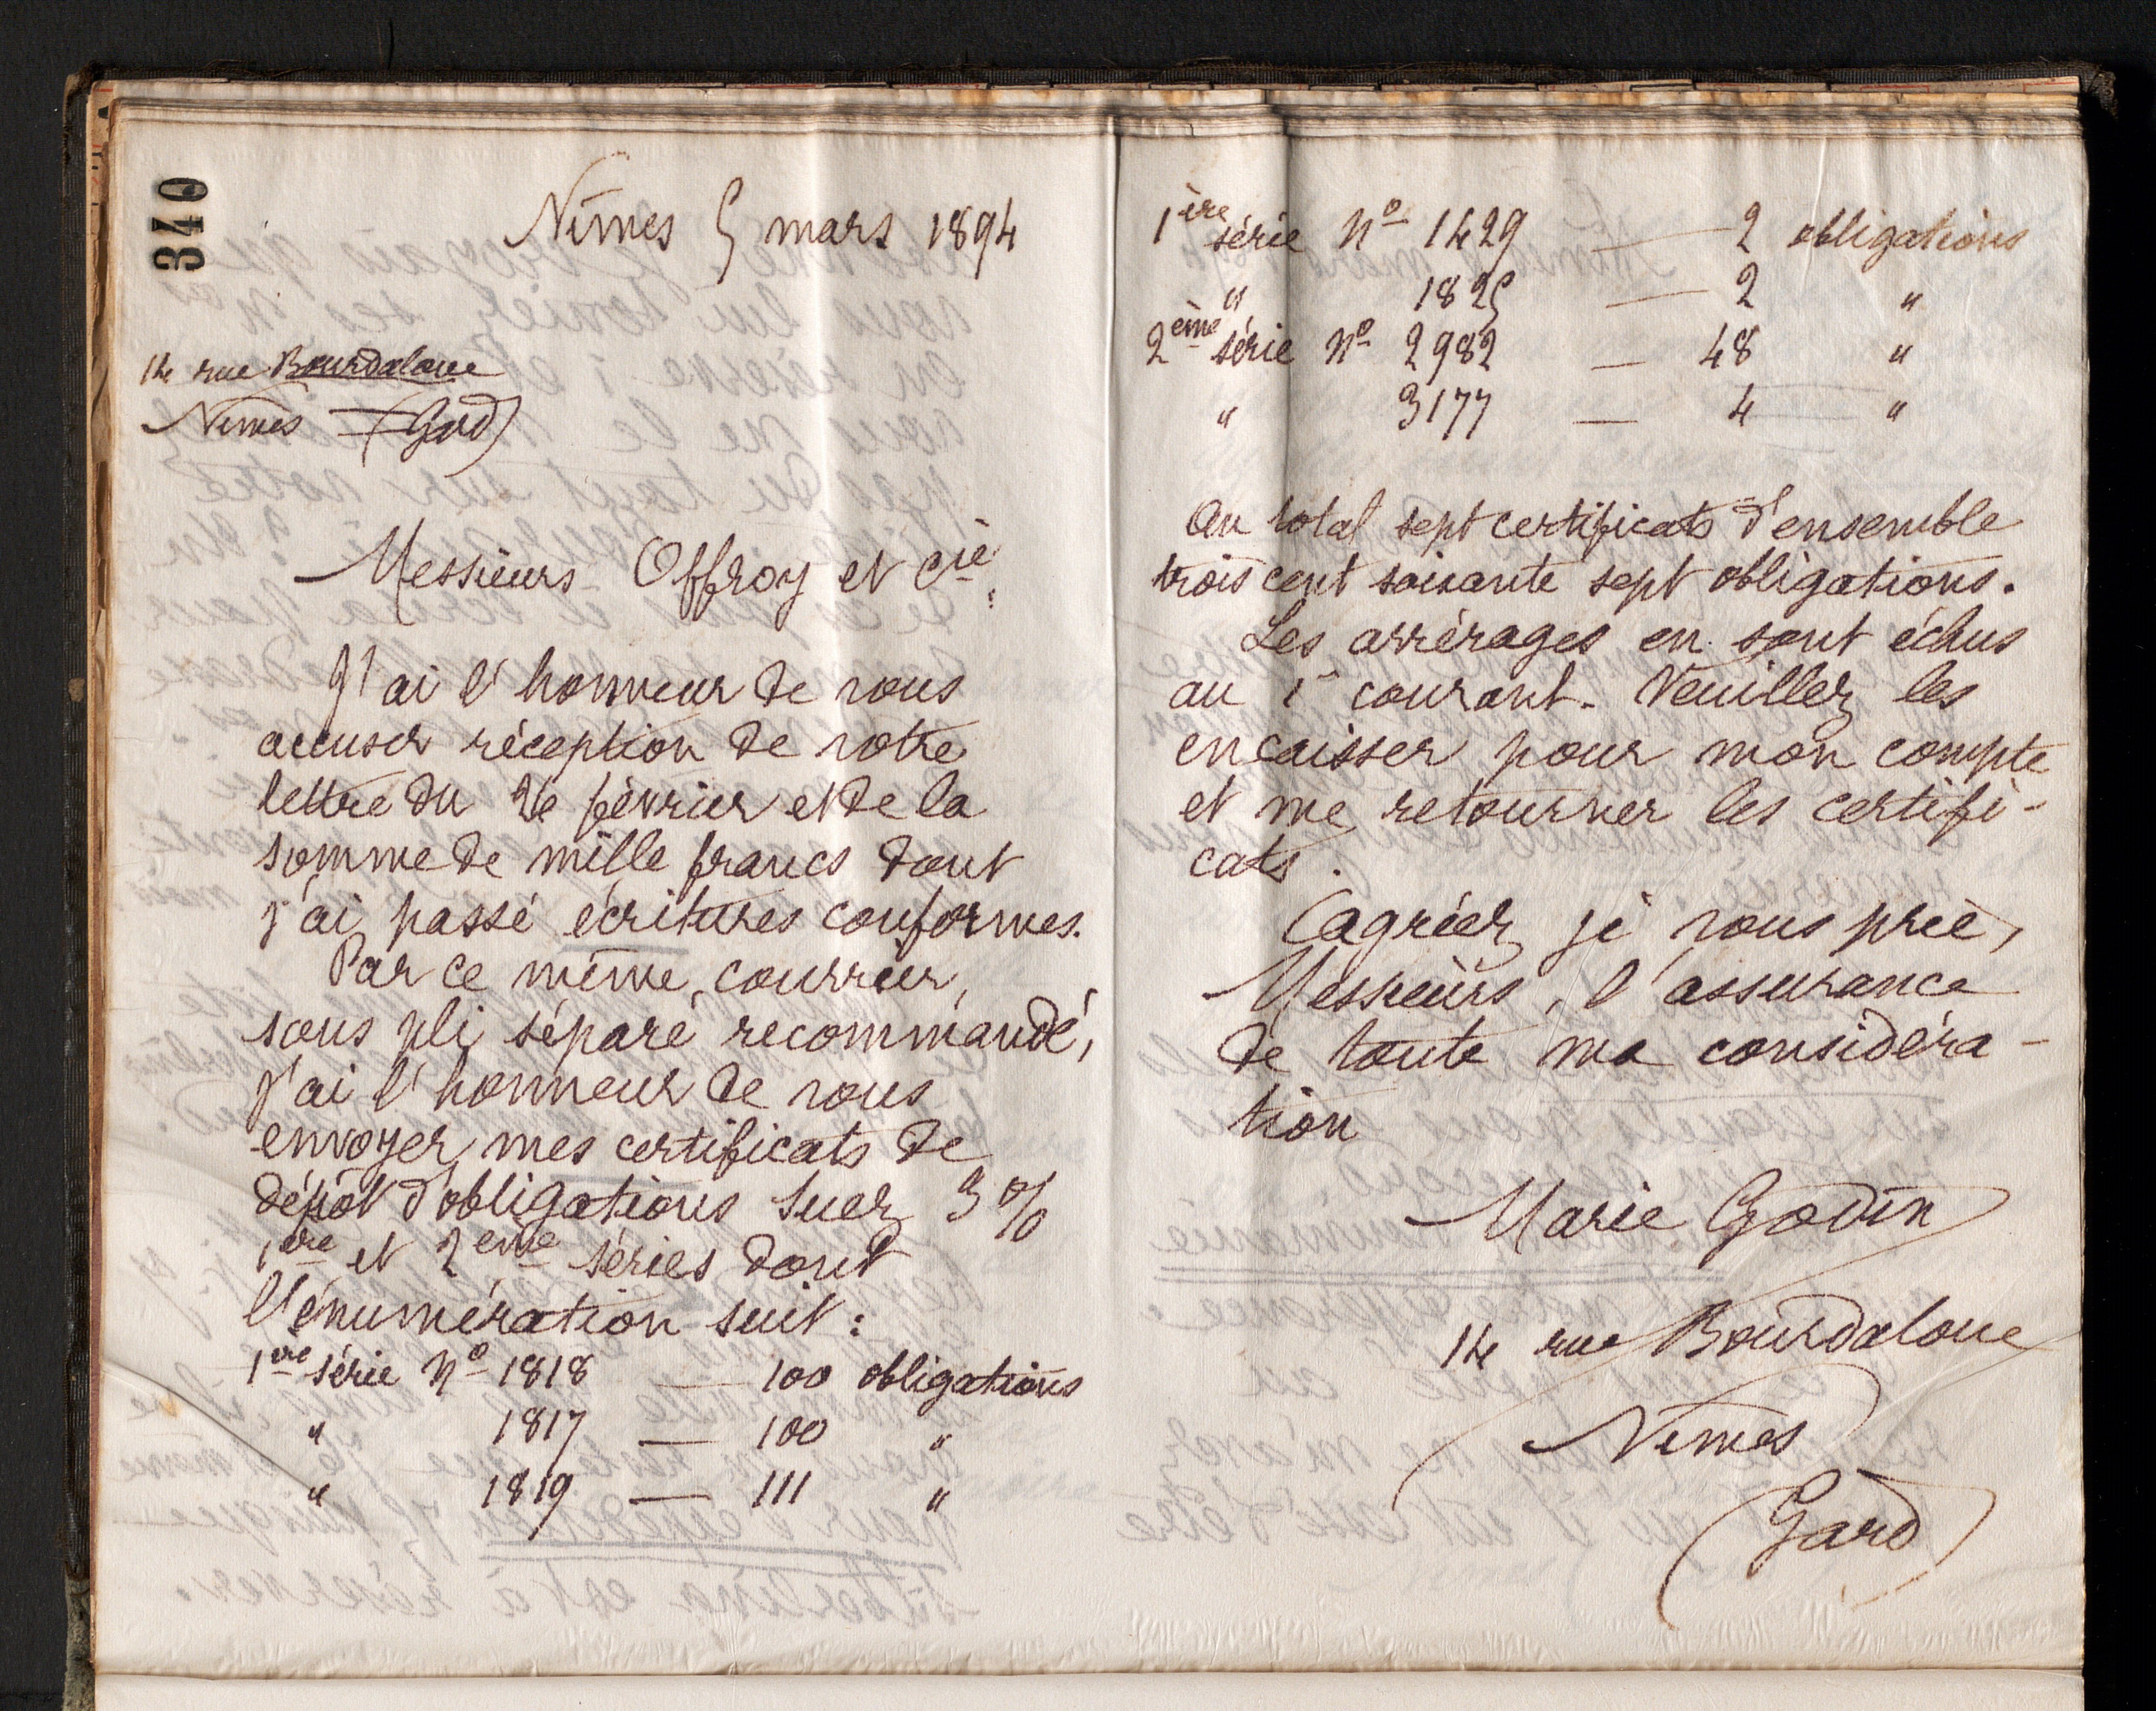 340
Nîmes 5 mars 1894
14 rue Bourdaloue
Nîmes (Gard)
Messieurs Offroy et Cie.
J'ai l'honneur de vous
accuser réception de votre
lettre du 26 février et de la
somme de mille francs dont
j'ai passé écritures conformes.
Par ce même courrier,
sous pli séparé recommandé,
j'ai l'honneur de vous
envoyer mes certificats de
dépôt d'obligations Suez 3%
1ère et 2ème séries dont
l'énumération suit :
1ère série No 1818 — 100 obligations
" 1817 — 100 "
" 1819 — 111 "
1ère série No 1429 — 2 obligations
" 1825 — 2 "
2ème série No 2982 — 48 "
" 3177 — 4 "
Au total sept certificats d'ensemble
trois cent soixante sept obligations.
Les arrérages en sont échus
au 1er courant. Veuillez les
encaisser pour mon compte
et me retourner les certifi-
cats.
Agréez je vous prie,
Messieurs, l'assurance
de toute ma considéra-
tion
Marie Godin
14 rue Bourdaloue
Nîmes
(Gard)